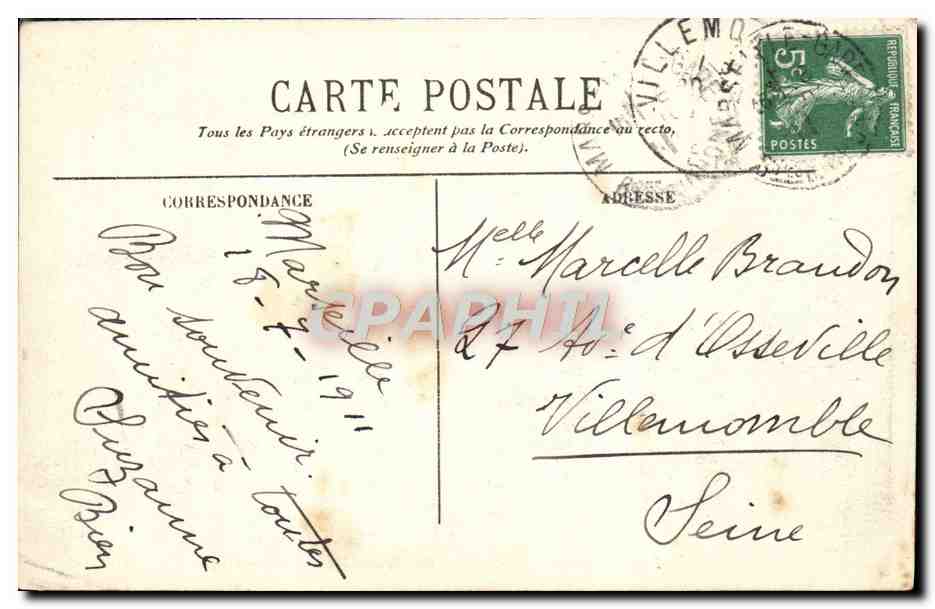 CARTE POSTALE
Tous les Pays étrangers n'acceptent pas la Correspondance au recto.
(Se renseigner à la Poste).
CORRESPONDANCE
ADRESSE
RÉPUBLIQUE FRANÇAISE
5c
POSTES
VILLEMO
Marseille
18-7-1911
Bon souvenir.
amitiés à toutes
Suzanne
Bien
Melle Marcelle Brandon
27 Ave d'Osseville
Villemomble
Seine
CPAPHIL